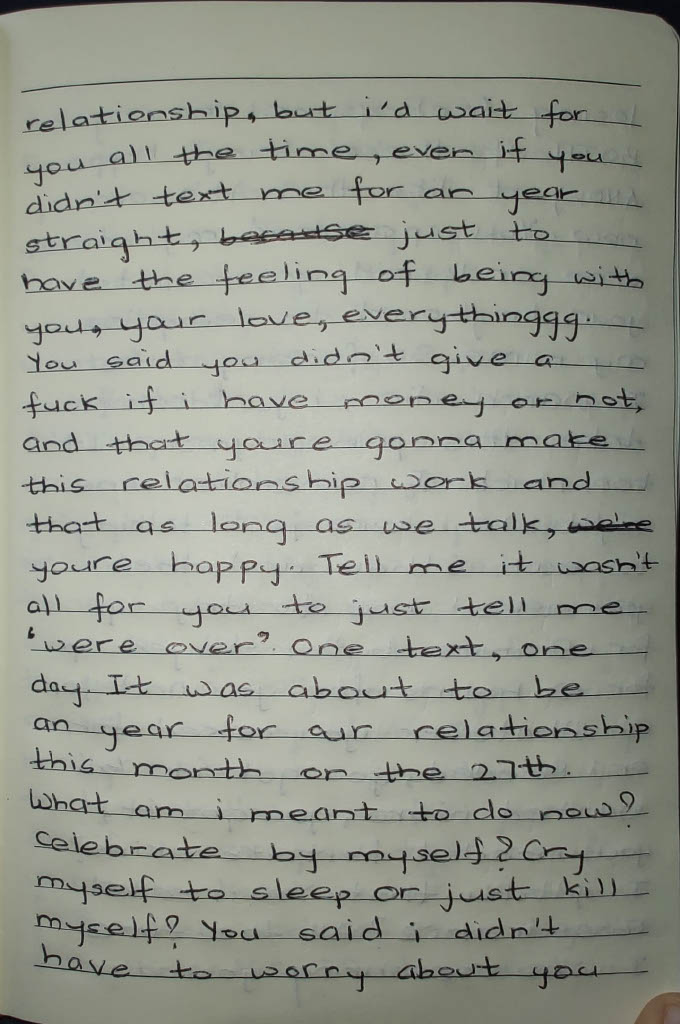 relationship, but i'd wait for
you all the time, even if you
didn't text me for an year
straight, because just to
have the feeling of being with
you, your love, everythinggg.
You said you didn't give a
fuck if i have money or not,
and that youre gonna make
this relationship work and
that as long as we talk, we're
youre happy. Tell me it wasn't
all for you to just tell me
'were over'. One text, one
day. It was about to be
an year for our relationship
this month on the 27th.
What am i meant to do now?
Celebrate by myself? Cry
myself to sleep or just kill
myself? You said i didn't
have to worry about you